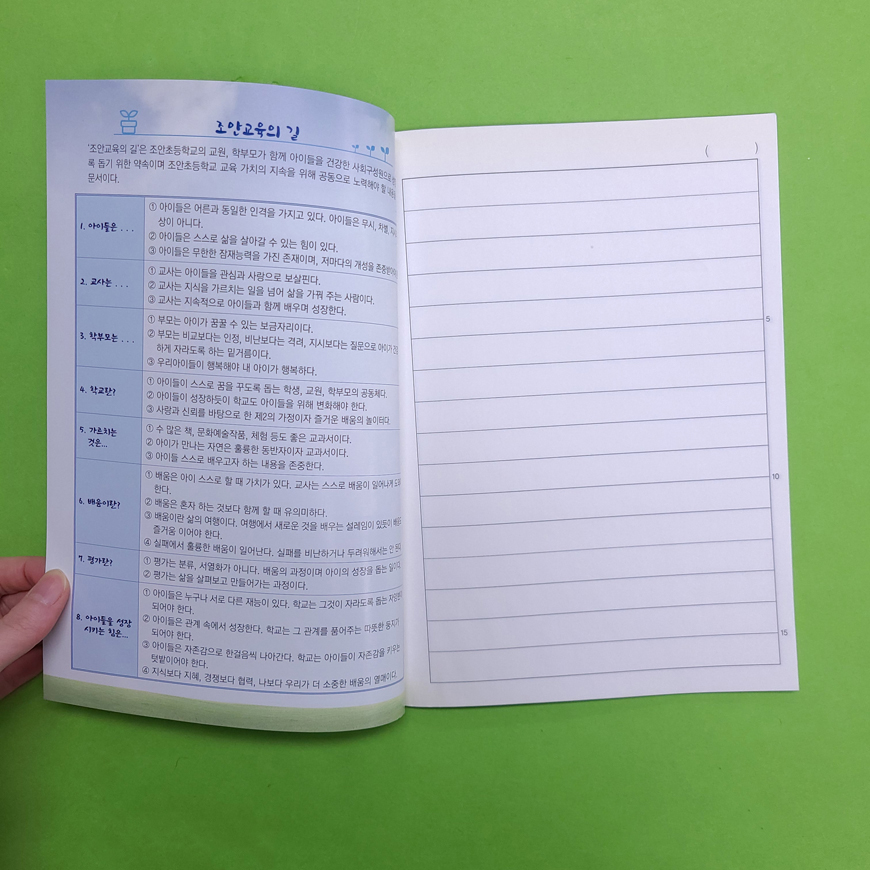 조안교육의 길
'조안교육의 길'은 조안초등학교의 교원, 학부모가 함께 아이들을 건강한 사회구성원으로
록 돕기 위한 약속이며 조안초등학교 교육 가치의 지속을 위해 공동으로 노력해야 할
문서이다.
1. 아이들은 . . .
① 아이들은 어른과 동일한 인격을 가지고 있다. 아이들은 무시, 차별,
상이 아니다.
② 아이들은 스스로 삶을 살아갈 수 있는 힘이 있다.
③ 아이들은 무한한 잠재능력을 가진 존재이며, 저마다의 개성을
2. 교사는 . . .
① 교사는 아이들을 관심과 사랑으로 보살핀다.
② 교사는 지식을 가르치는 일을 넘어 삶을 가꿔 주는 사람이다.
③ 교사는 지속적으로 아이들과 함께 배우며 성장한다.
3. 학부모는 . . .
① 부모는 아이가 꿈꿀 수 있는 보금자리이다.
② 부모는 비교보다는 인정, 비난보다는 격려, 지시보다는 질문으로 아이가
하게 자라도록 하는 밑거름이다.
③ 우리아이들이 행복해야 내 아이가 행복하다.
4. 학교란?
① 아이들이 스스로 꿈을 꾸도록 돕는 학생, 교원, 학부모의 공동체다.
② 아이들이 성장하듯이 학교도 아이들을 위해 변화해야 한다.
③ 사랑과 신뢰를 바탕으로 한 제2의 가정이자 즐거운 배움의 놀이터다.
5. 가르치는
것은...
① 수 많은 책, 문화예술작품, 체험 등도 좋은 교과서이다.
② 아이가 만나는 자연은 훌륭한 동반자이자 교과서이다.
③ 아이들 스스로 배우고자 하는 내용을 존중한다.
6. 배움이란?
① 배움은 아이 스스로 할 때 가치가 있다. 교사는 스스로 배움이 일어나게
한다.
② 배움은 혼자 하는 것보다 함께 할 때 유의미하다.
③ 배움이란 삶의 여행이다. 여행에서 새로운 것을 배우는 설레임이 있듯이
즐거움 이어야 한다.
④ 실패에서 훌륭한 배움이 일어난다. 실패를 비난하거나 두려워해서는 안
7. 평가란?
① 평가는 분류, 서열화가 아니다. 배움의 과정이며 아이의 성장을 돕는
② 평가는 삶을 살펴보고 만들어가는 과정이다.
8. 아이들을 성장
시키는 힘은...
① 아이들은 누구나 서로 다른 재능이 있다. 학교는 그것이 자라도록 돕는
되어야 한다.
② 아이들은 관계 속에서 성장한다. 학교는 그 관계를 품어주는 따뜻한 둥지가
되어야 한다.
③ 아이들은 자존감으로 한걸음씩 나아간다. 학교는 아이들이 자존감을 키우는
텃밭이어야 한다.
④ 지식보다 지혜, 경쟁보다 협력, 나보다 우리가 더 소중한 배움의 열매이다.
( )
5
10
15